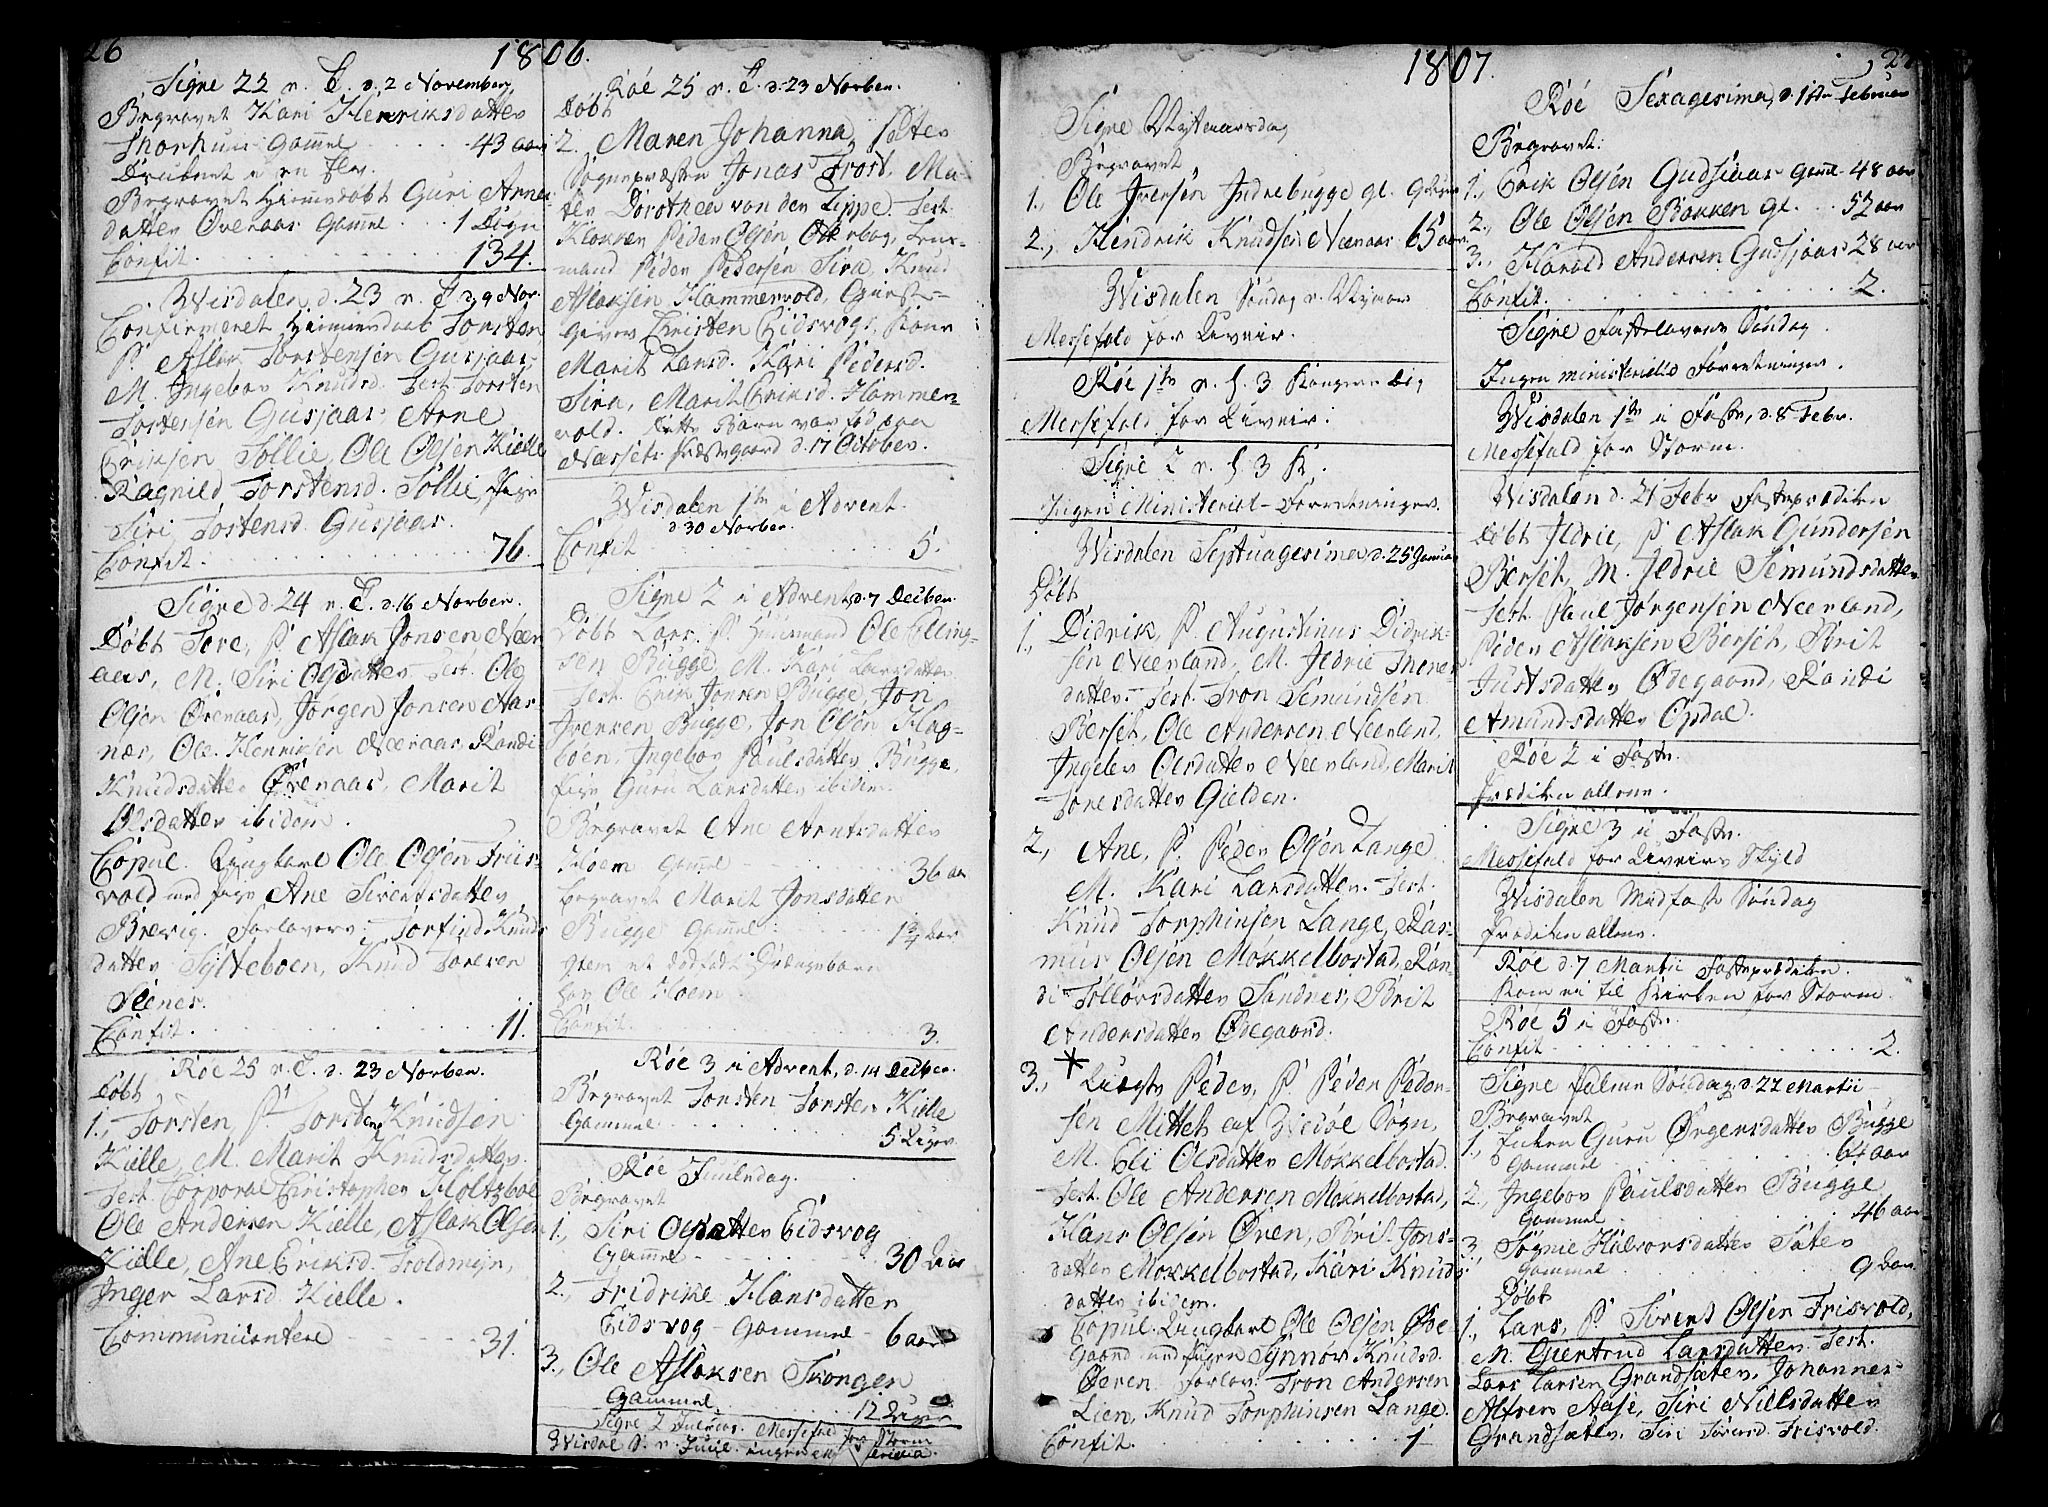 26
1806.
Signe 22 n. T. d. 2 November,
Begravet Kari Henriksdatter
Thorhuus Gammel . . . . 43 aar
Druknet i en Elv.
Begravet hiemmedøbt Guri Arnes
datter Øvenaas Gammel . . 1 Døgn
Confit. . . . 134.
Visdalen d. 23 n. T. d. 9 Nov.
Confirmeret hiemmedaab Torsten
P. Aslak Torstensen Gusjaas
M. Ingebor Knudsd. Test. Torsten
Torstensen Gusjaas, Arne
Eriksen Tøllie, Ole Olsen Kielle
Ragnild Torstensd. Tøllie, Pige
Siri Torstensd. Gusjaas.
Confit. . . . 76.
Signe d. 24 n. T. d. 16 Novbr.
Døbt Tore, P. Aslak Jonsen Neer
aas, M. Siri Olsdatter Test. Ole
Olsen Øvenaas, Jørgen Jonsen Aas
næs, Ole Henriksen Neeraas, Randi
Knudsdatter Øvenaas, Marit
Olsdatter ibidem.
Copul. Ungkarl Ole Olsen Friis-
vold med Pige Ane Sivertsdatter
Brevig. Forlovere Torfind Knuds
datter Sylteboen, Knud Toresen
Stenes.
Confit. . . . 11.
Røe 25 n. T. d. 23 Novber.
Døbt
1., Torsten P. Torsten Knudsen
Kielle, M. Marit Knudsdatter.
Test. Corporal Christopher Holtzboe
Ole Andersen Kielle, Aslak Olsen
Kielle, Ane Eriksd. Toldmyn,
Inger Larsd. Kielle.
Communicantere . . . 31.
Røe 25 n. T. d. 23 Novber.
Døbt
2. Maren Johanna, Fader
Sognepræsten Jonas Frost, Mo-
der Dorothea von der Lippe. Test.
Klokker Peder Olsen Otterbog, Lens-
mand Peder Pedersen Sira, Knud
Aslaksen Hammervold, Giæst-
giver Christen Eidsvogs Kone
Marit Larsd. Kari Pedersd.
Sira, Marit Eriksd. Hammer-
vold. Dette Barn var fød paa
Næssets Præstegaard d. 17 October.
Visdalen 1ste i Advent.
d. 30 Novber.
Confit . . . 5.
Signe 2 i Advent, d. 7 Decber.
Døbt Lars, P. Huusmand Ole Elling-
sen Bugge, M. Kari Larsdatter
Test. Erik Jonsen Bugge, Jon
Iversen Bugge, Jon Olsen Hag-
boen, Ingebor Paulsdatter Bugge,
Pige Guru Larsdatter ibidem.
Begravet Ane Arntsdatter
Hoem Gammel . . . 36 aar
begravet Marit Jonsdatter
Bugge Gammel . . . 1 3/4 aar
item et dødfødt Drengebarn
for Ole Hoem.
Confit. . . . 3.
Røe 3 i Advent, d. 14 Decber.
Begravet Torsten Torsten Kielle
Gammel . . . 5 Uger.
Røe Juuledag.
Begravet
1., Siri Olsdatter Eidsvog
Gammel . . . 30 Aar
2., Fridrike Hansdatter
Eidsvog Gammel 6 aar
3., Ole Aslaksen Skongen
Gammel . . . 12 Uger
Signe 2 Juledag. Messefald for Storm
Visdal S. n. Juul.
1807.
Signe Nytaarsdag
Begravet
1., Ole Iversen Indrebugge gl. 9 Uger
2., Hendrik Knudsen Neeraas 65 aar.
Visdalen Søndag n. Nytaar
Messefald for Uveir.
Røe 1ste n. h. 3 Kongers Dag
Messefald for Uveir.
Signe 2 n. h. 3 K.
Ingen Ministerial-Forretninger.
Visdalen Septuagesima, d. 25 Januar
Døbt
1., Didrik, P. Augustinus Didrik-
sen Neerland, M. Ildrie Iver
datter. Test. Tron Semundsen
Berset, Ole Andersen Neerland,
Ingebor Olsdatter Neerland, Marit
Toresdatter Gielden.
2, Ane, P. Peder Olsen Lange
M. Kari Larsdatter. Test.
Knud Torphinsen Lange, Ras-
mus Olsen Mokkelbostad, Ran
di Tolløvsdatter Sandnes, Brit
Andersdatter Ødegaard.
3., * Uægte Peder, P. Peder Peder-
sen Mittet af Veøe Sogn,
M. Eli Olsdatter Mokkelbostad.
Test. Ole Andersen Mokkelbostad,
Hans Olsen Øren, Brit Jons-
datter Mokkelbostad, Kari Knuds
datter ibidem.
Copul. Ungkarl Ole Olsen Øde
gaard med Pigen Synnøv Knudsd.
Øveren Forlov. Tron Andersen
Lien, Knud Torphinsen Lange.
Confit. . . . 1
27
Røe Sexagesima, d. 1ste Februar
Begravet:
1., Erik Olsen Gudsiaas Gamel 48 aar
2., Ole Olsen Bakken gl. . . 52 aar
3., Harald Andersen Gudsjaas 28 aar
Confit. . . . 2.
Signe Fastelavens Søndag.
Ingen ministerielle Forretninger.
Visdalen 1ste i Faste, d. 8 Febr.
Messefald for Storm.
Visdalen d. 21 Febr Fasteprædiken
Døbt Ildrie, P. Aslak Gundersen
Berset, M. Ildrie Semundsdatter
Test. Paul Jørgensen Neerland,
Peder Aslaksen Berset, Brit
Justsdatter Ødegaard, Randi
Amundsdatter Opdal.
Røe 2 i Faste.
Prædiken allene.
Signe 3 i Faste.
Messefald for Uveirs Skyld
Visdalen Midfaste Søndag
Prædiken allene.
Røe d. 7 Martii Fasteprædiken.
Kom ei til Kirken for Storm.
Røe 5 i Faste.
Confit. . . . 2.
Signe Palme Søndag d. 22 Martii
Begravet
1., Enken Guru Ørgersdatter Bugge
Gammel . . . 64 aar
2., Ingebor Paulsdatter Bugge
Gammel . . . 46 aar
3., Sognie Halvorsdatter Sæter
Gammel . . . 9 aar.
Døbt
1., Lars, P. Sivert Olsen Frisvold,
M. Giertrud Larsdatter. Test.
Lars Larsen Grandsæter, Johannes
Alfsen Aase, Siri Nielsdatter
Grandsæter, Siri Torersd. Frisvold.